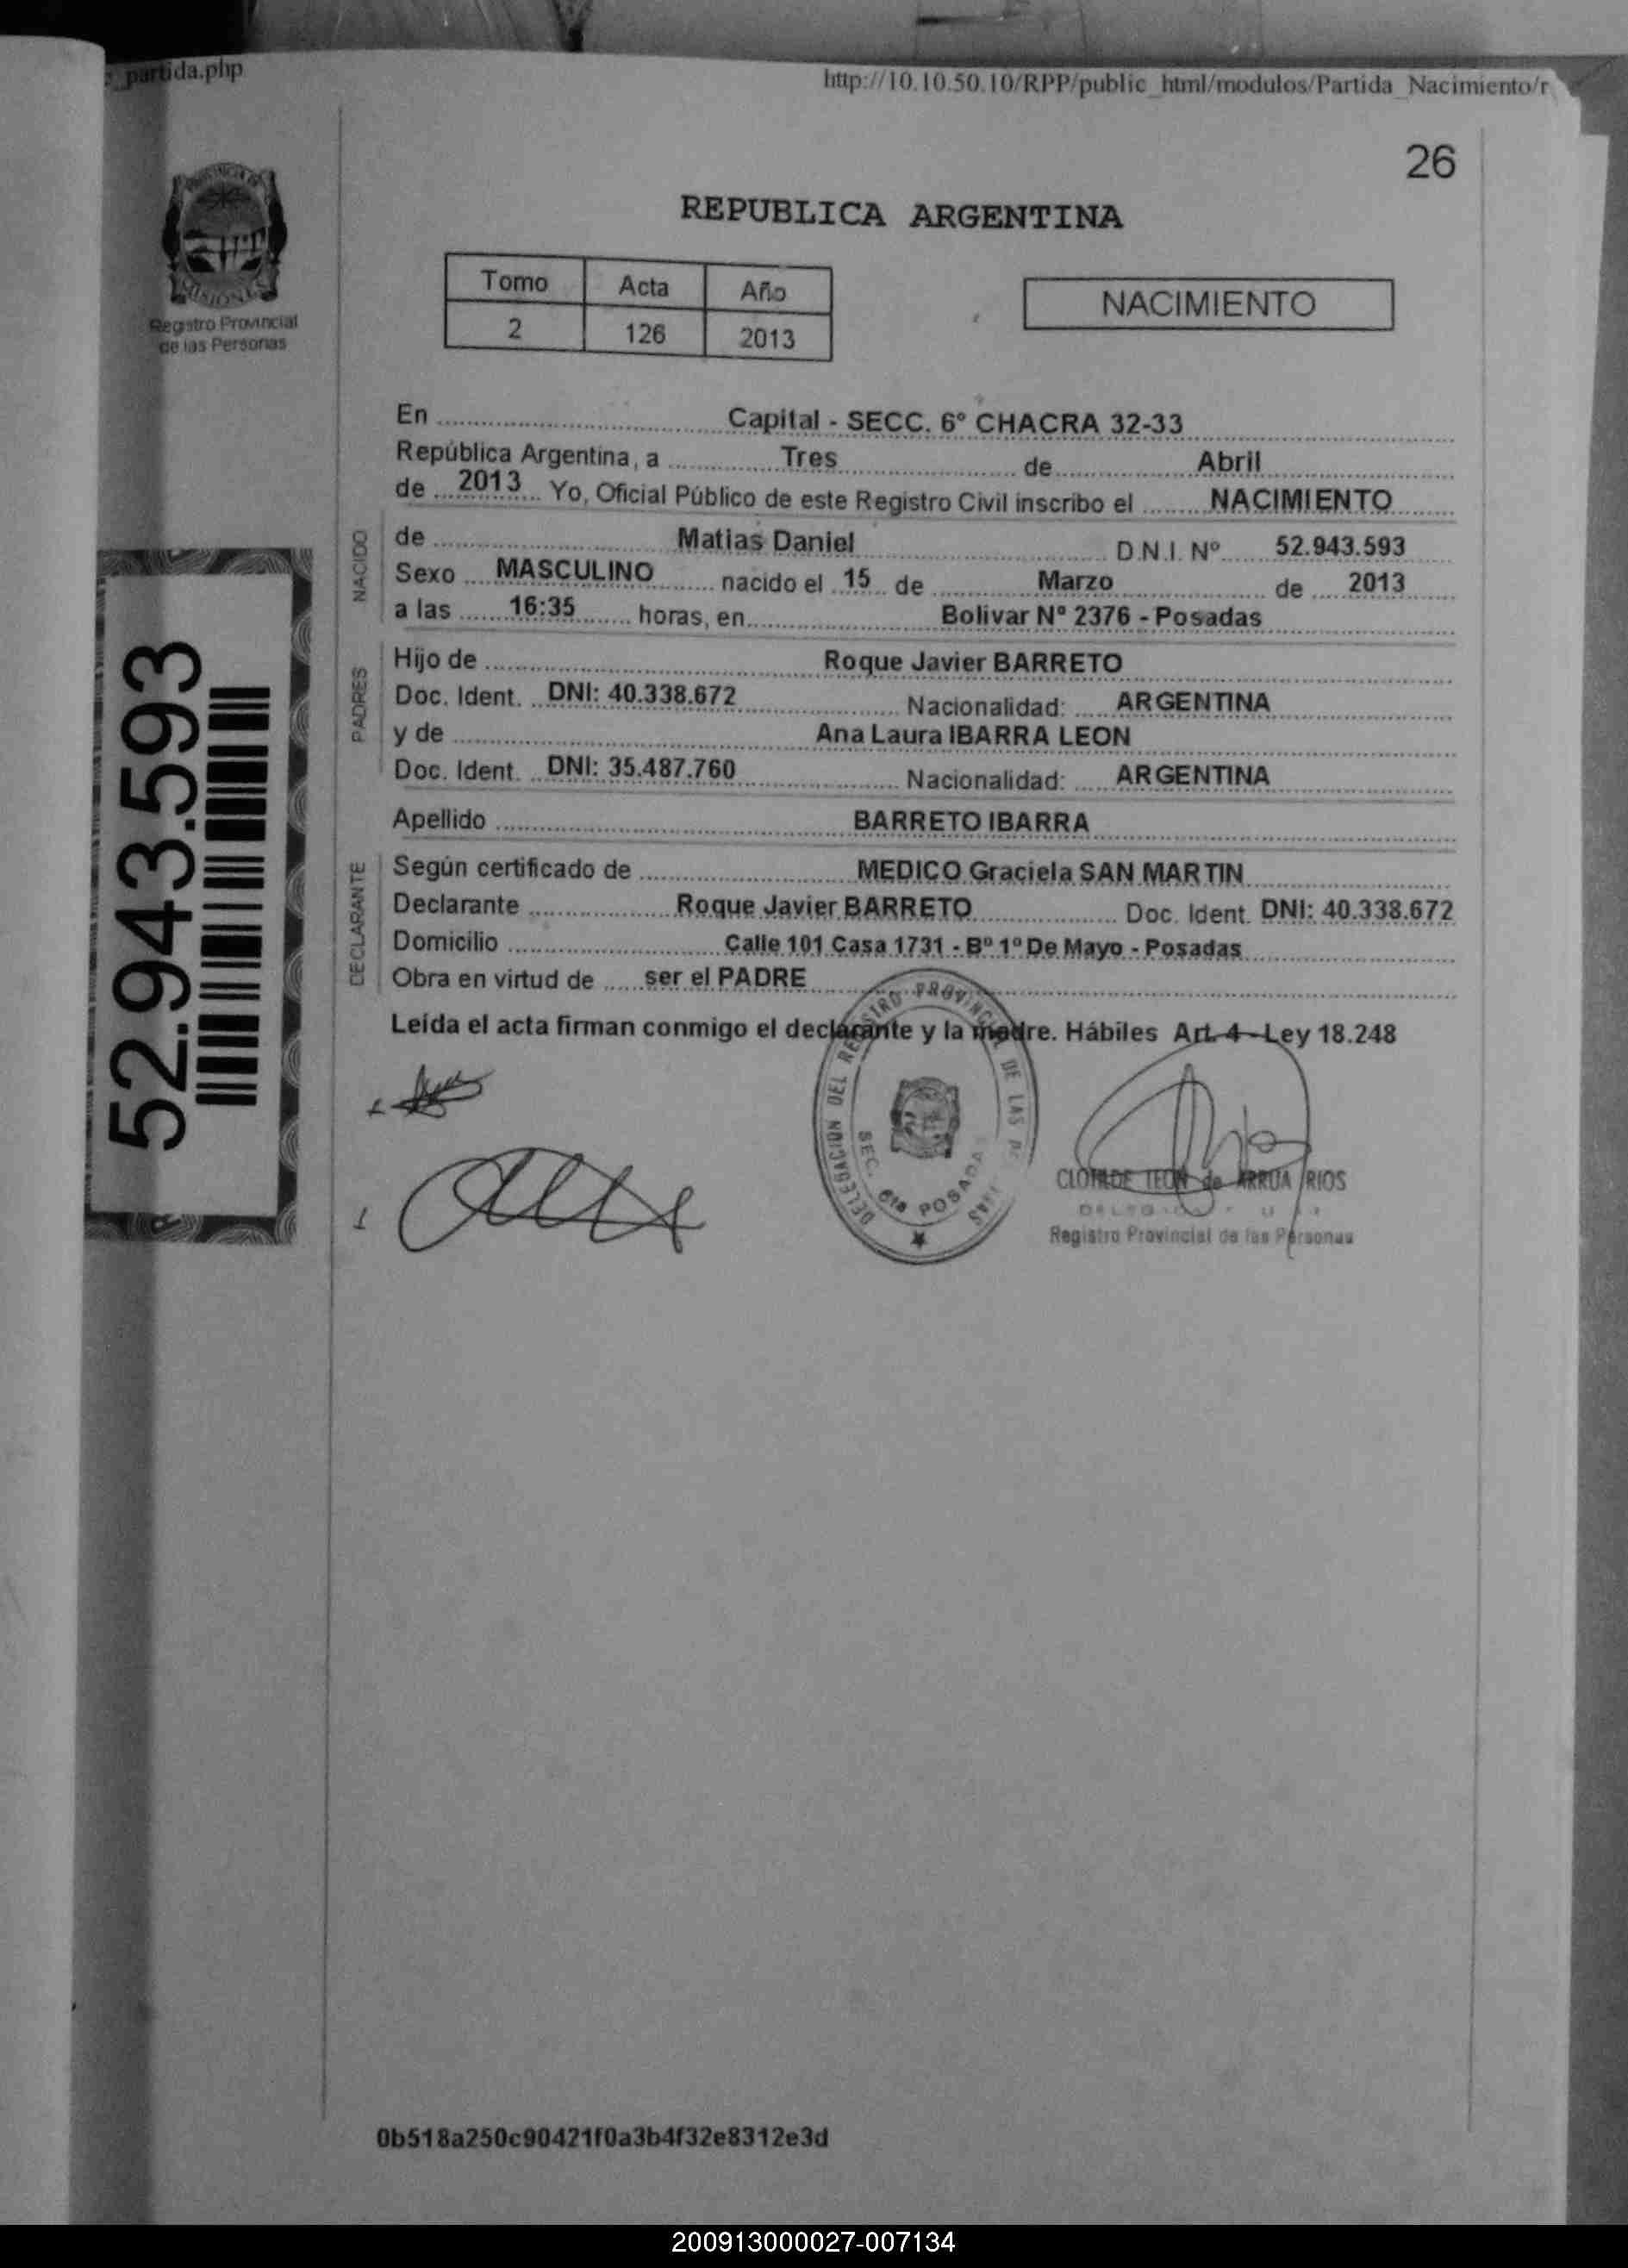 partida.php
http://10.10.50.10/RPP/public_html/modulos/Partida_Nacimiento/r
26
PROVINCIA DE
MISIONES
Registro Provincial
de las Personas
REPUBLICA ARGENTINA
Tomo Acta Año
2 126 2013
NACIMIENTO
En Capital - SECC. 6º CHACRA 32-33
República Argentina, a Tres de Abril
de 2013 Yo, Oficial Público de este Registro Civil inscribo el NACIMIENTO
NACIDO
de Matias Daniel D.N.I. Nº 52.943.593
Sexo MASCULINO nacido el 15 de Marzo de 2013
a las 16:35 horas, en Bolivar Nº 2376 - Posadas
PADRES
Hijo de Roque Javier BARRETO
Doc. Ident. DNI: 40.338.672 Nacionalidad: ARGENTINA
y de Ana Laura IBARRA LEON
Doc. Ident. DNI: 35.487.760 Nacionalidad: ARGENTINA
Apellido BARRETO IBARRA
DECLARANTE
Según certificado de MEDICO Graciela SAN MARTIN
Declarante Roque Javier BARRETO Doc. Ident. DNI: 40.338.672
Domicilio Calle 101 Casa 1731 - Bº 1º De Mayo - Posadas
Obra en virtud de ser el PADRE
Leída el acta firman conmigo el declarante y la madre. Hábiles Art. 4 - Ley 18.248
52.943.593
DELEGACION DEL REGISTRO PROVINCIAL DE LAS
SEC. 6ta POSADAS
CLOTILDE LEON de ARRUA RIOS
Registro Provincial de las Personas
0b518a250c90421f0a3b4f32e8312e3d
200913000027-007134